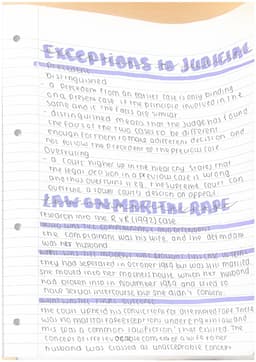 Exceptions to JUDICIAL
precedent
Distinguished
- a precedent from an earlier case is only binding
on a present case if the principle involved in the
same and if the facts are similar.
- distinguished means that the judge has found
the facts of the two cases to be different
enough for them to make a different decision and
not follow the precedent of the previous case
Overruling
- a court higher up in the hierarchy states that
the legal decision in a previous case is wrong
and thus overturns it eg, the supreme court can
overrule a lower courts decision on appeal
LAW ON MARITAL RAPE
research into the R v R (1992) case
the complainant was his wife, and the defendant
was her husband
they had separated in October 1989 but was still married
she moved into her mothers house, which her husband
had broken into in November 1989 and tried to
have sexual intercourse, but she didn't consent.
the court upheld his conviction for attempted rape. There
was no marital rape exemption under english law and
this was a common law fiction that existed. The
concept of irrevocable consent of a wife to her
husband was classed as unacceptable concept